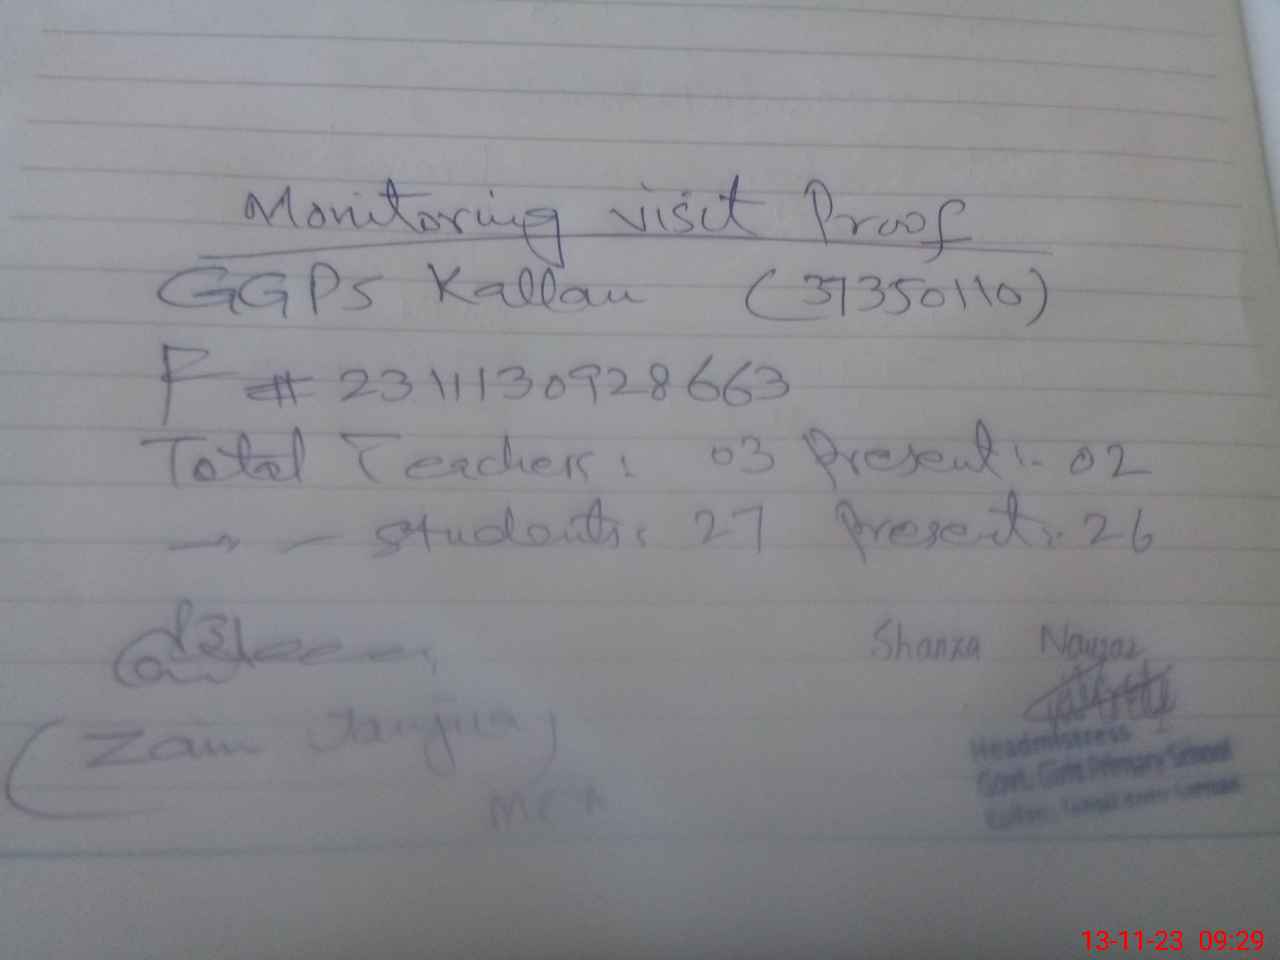 Monitoring visit Proof
GGPS Kallan (37350110)
F # 2311130928663
Total Teachers: 03 Present:- 02
—〃— students: 27 Present: 26
Shanza
(Zain Janjua)
Headmistress
Govt. Girls Primary School
13-11-23 09:29